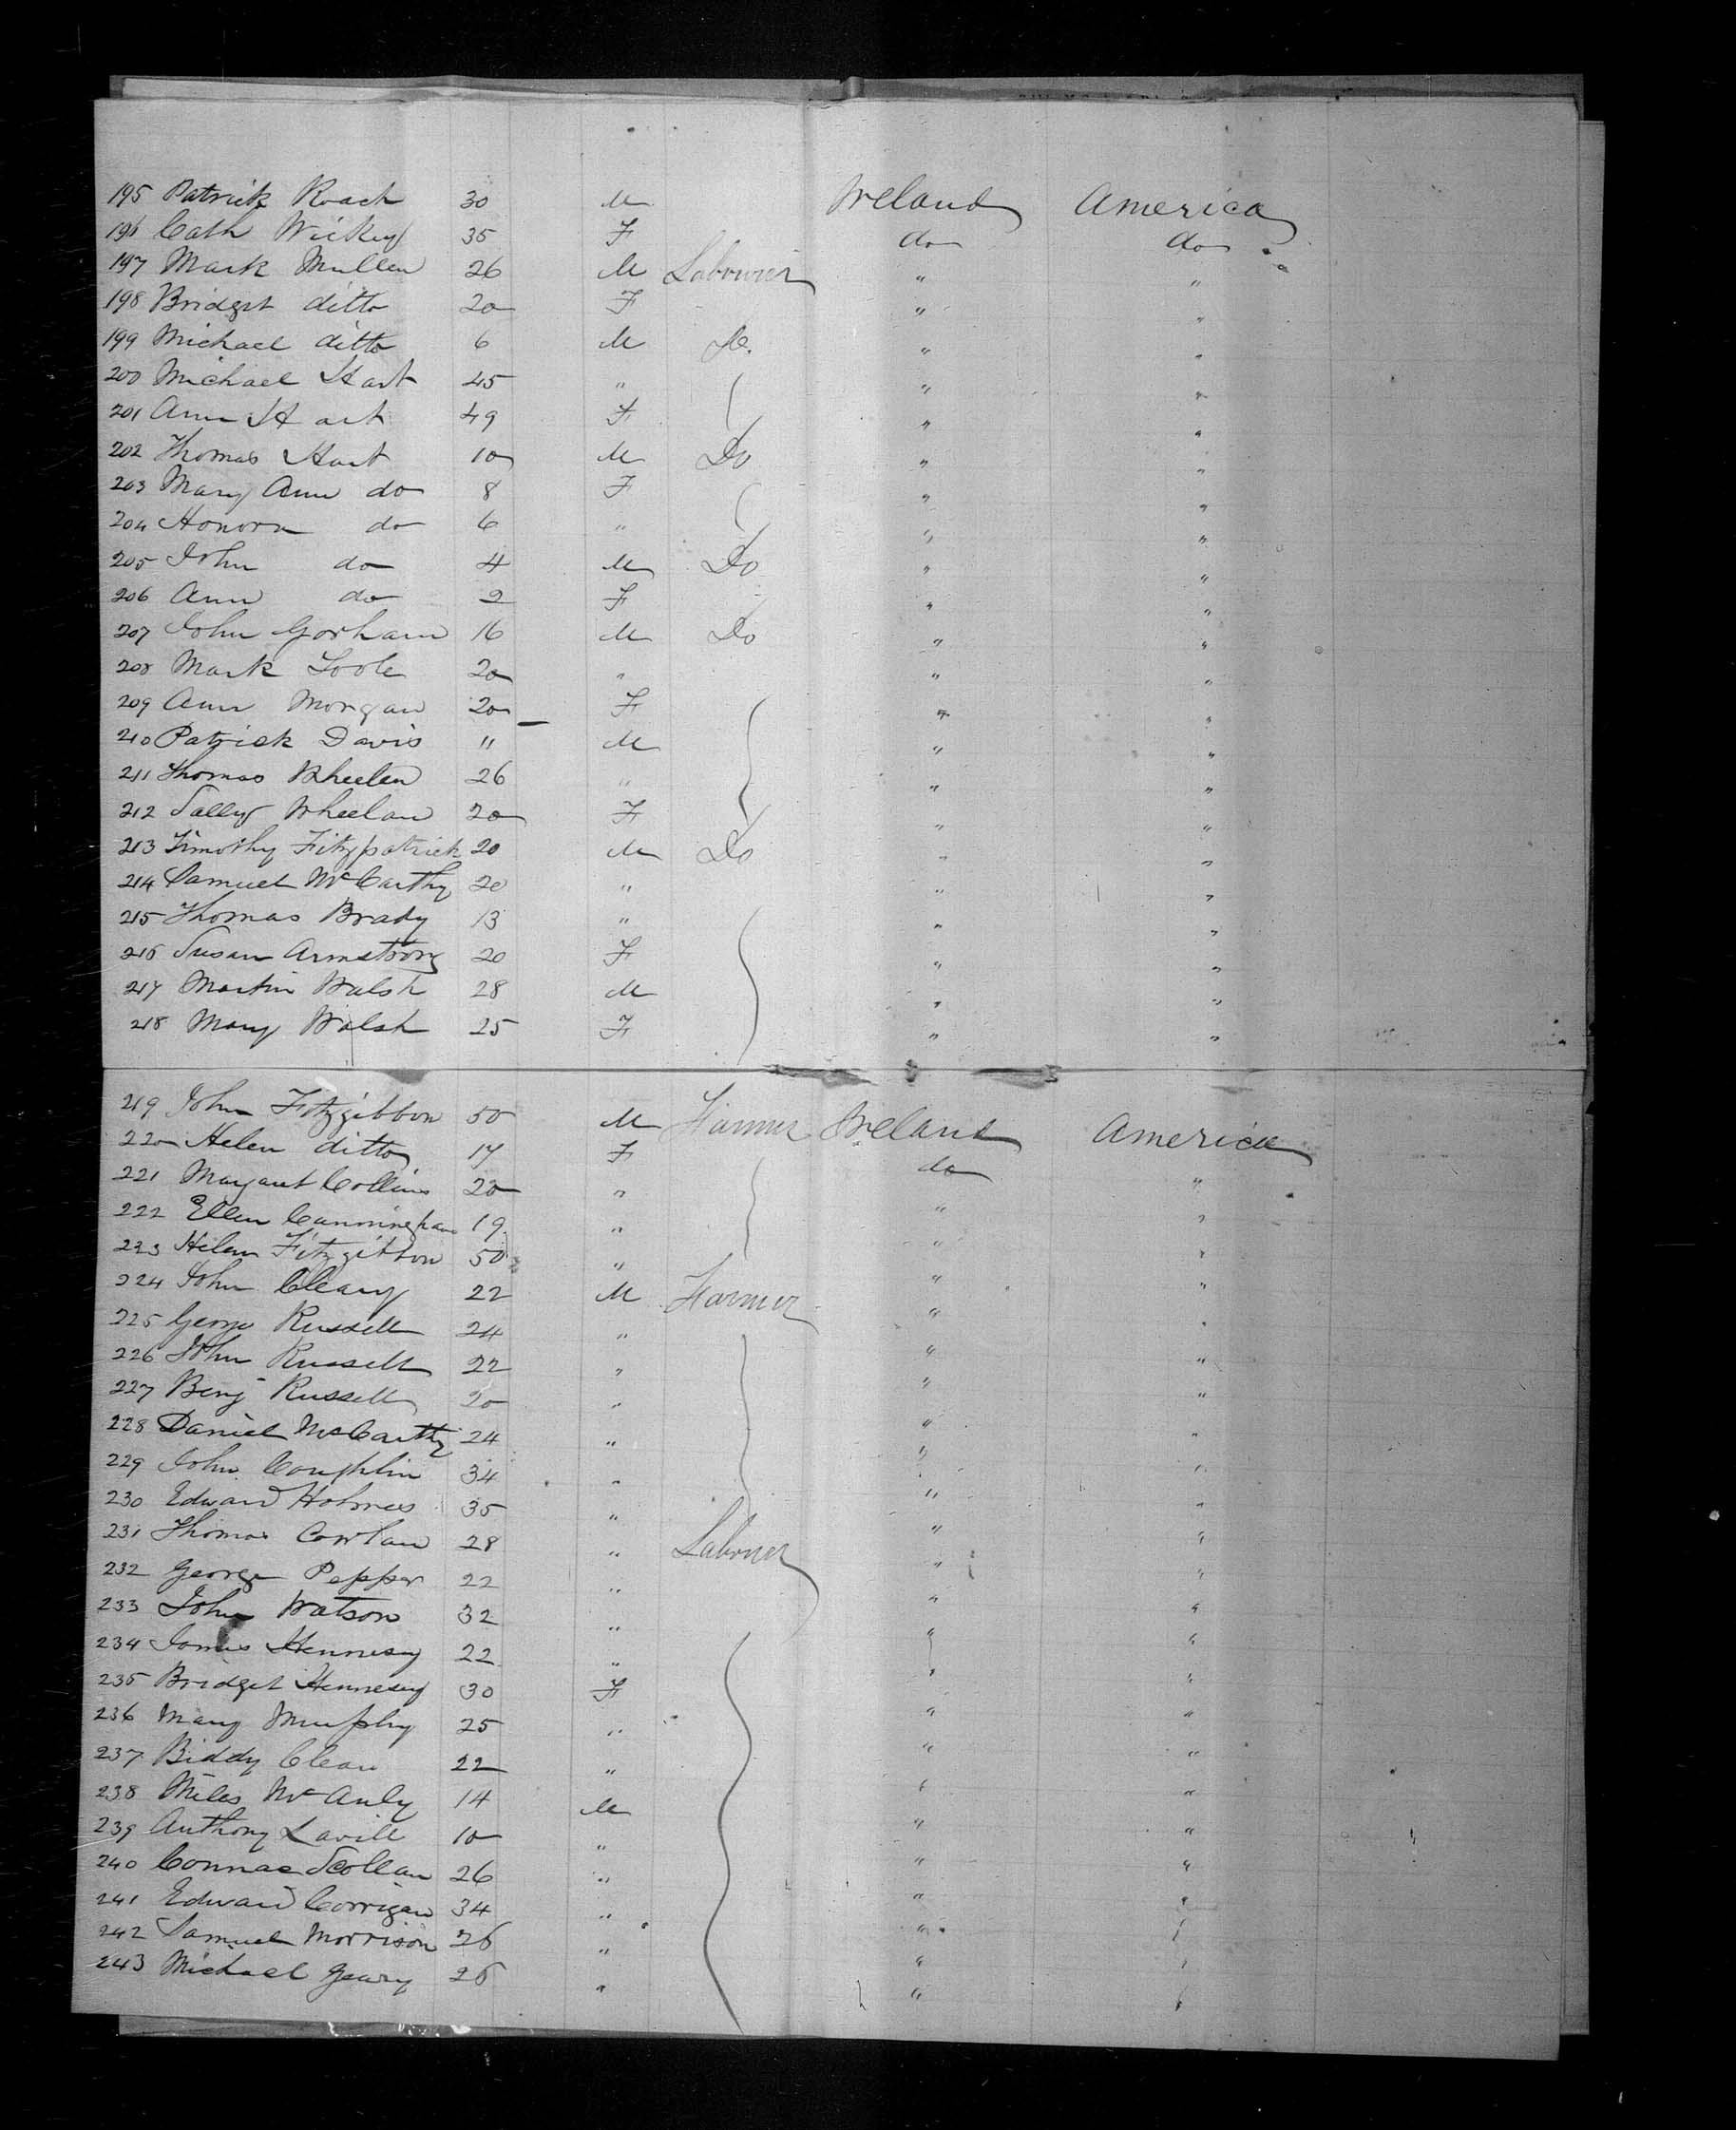 195 Patrick Roach 30 M Ireland America
196 Cath Wickey 35 F do do
197 Mark Mullen 26 M Labourer " "
198 Bridget ditto 20 F " "
199 Michael ditto 6 M " "
200 Michael Hart 45 " " "
201 Ann Hart 49 F " "
202 Thomas Hart 10 M Do " "
203 Mary Ann do 8 F " "
204 Honora do 6 " " "
205 John do 4 M Do " "
206 Ann do 2 F " "
207 John Gorham 16 M Do " "
208 Mark Toole 20 " " "
209 Ann Morgan 20 F " "
210 Patrick Davis 11 M " "
211 Thomas Wheelan 26 " " "
212 Sally Wheelan 20 F " "
213 Timothy Fitzpatrick 20 M Do " "
214 Samuel McCarthy 20 " " "
215 Thomas Brady 13 " " "
216 Susan Armstrong 20 F " "
217 Martin Walsh 28 M " "
218 Mary Walsh 25 F " "
219 John Fitzgibbon 50 M Farmer Ireland America
220 Helen ditto 17 F do "
221 Margaret Collins 20 " " "
222 Ellen Cunningham 19 " " "
223 Helen Fitzgibbon 50 " " "
224 John Cleary 22 M Farmer " "
225 George Russell 24 " " "
226 John Russell 22 " " "
227 Benj Russell 20 " " "
228 Daniel McCarthy 24 " " "
229 John Coughlin 34 " " "
230 Edward Holmes 35 " " "
231 Thomas 28 " Labourer " "
232 George Pepper 22 " " "
233 John Watson 32 " " "
234 James Hennesy 22 " " "
235 Bridget Hennesey 30 F " "
236 Mary Murphy 25 " " "
237 Biddy Clean 22 " " "
238 Miles McAnly 14 M " "
239 Anthony Lavill 10 " " "
240 Connac Scollan 26 " " "
241 Edward Corrigan 34 " " "
242 Samuel Morrison 26 " " "
243 Michael Geary 26 " " "